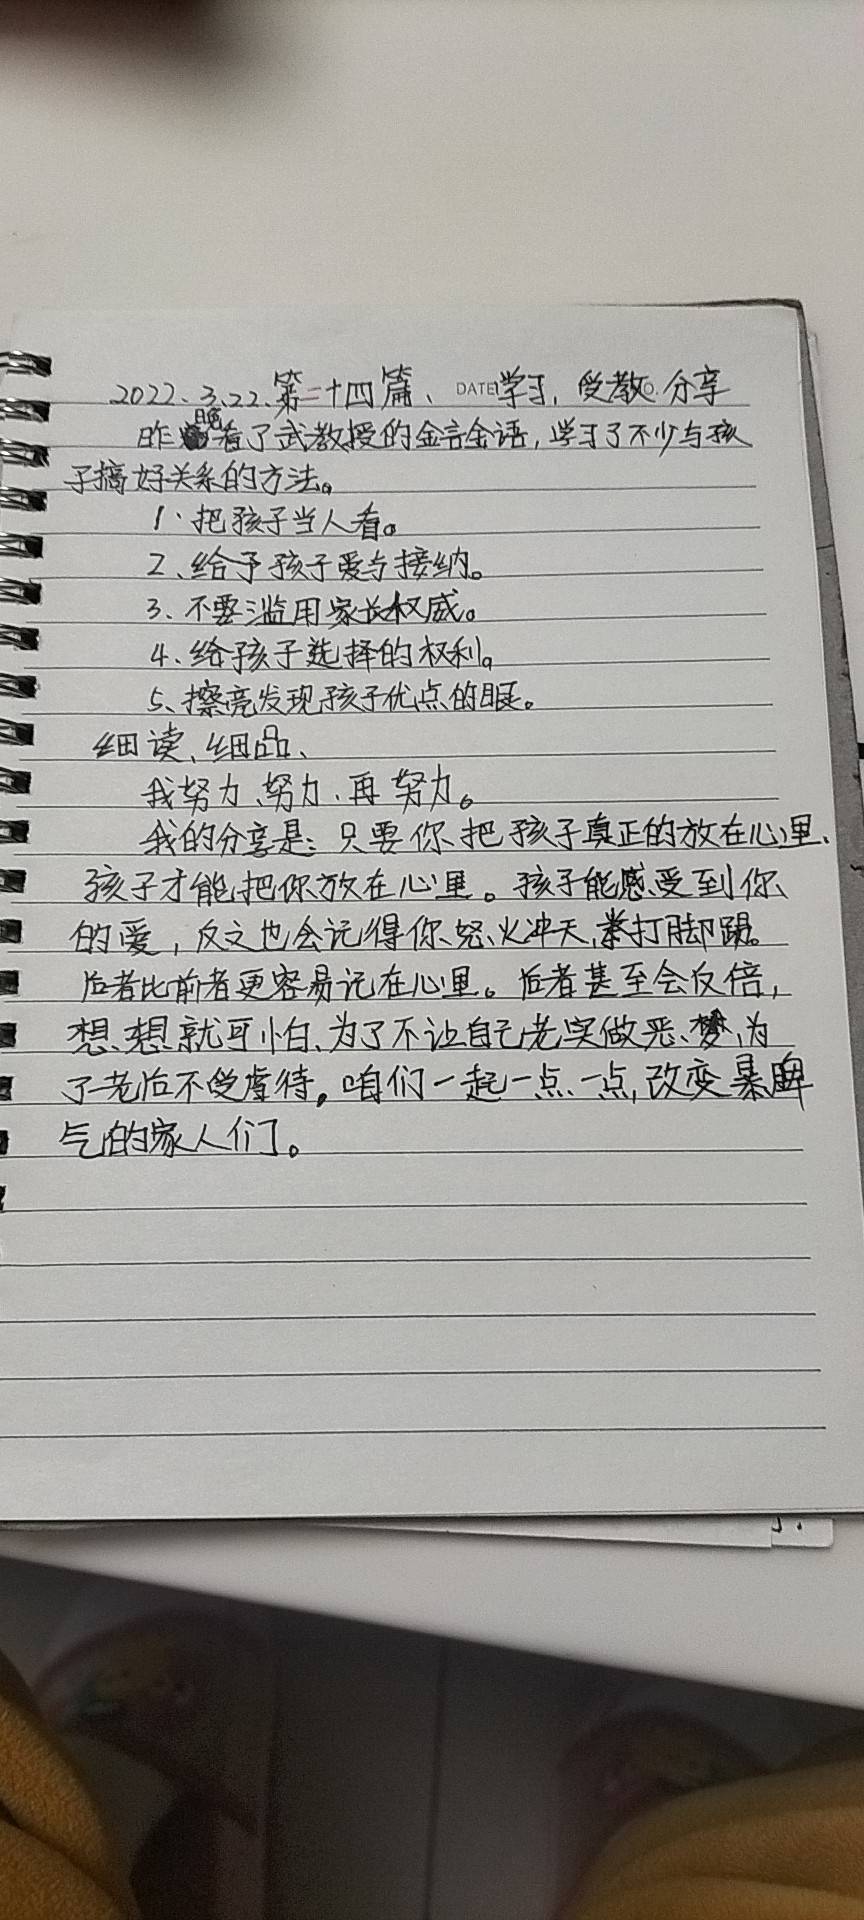 2022.3.22.第二十四篇、 DATE 学习,受教 NO. 分享
昨晚看了武教授的金言金语,学习了不少与孩
子搞好关系的方法。
1、把孩子当人看。
2、给予孩子爱与接纳。
3、不要滥用家长权威。
4、给孩子选择的权利。
5、擦亮发现孩子优点的眼。
细读、细品、
我努力、努力、再努力。
我的分享是:只要你把孩子真正的放在心里、
孩子才能把你放在心里。孩子能感受到你
的爱,反之也会记得你怒火冲天,拳打脚踢。
后者比前者更容易记在心里。后者甚至会反倍,
想想就可怕、为了不让自己老实做恶梦,为
了老后不受虐待。咱们一起一点一点,改变暴脾
气的家人们。